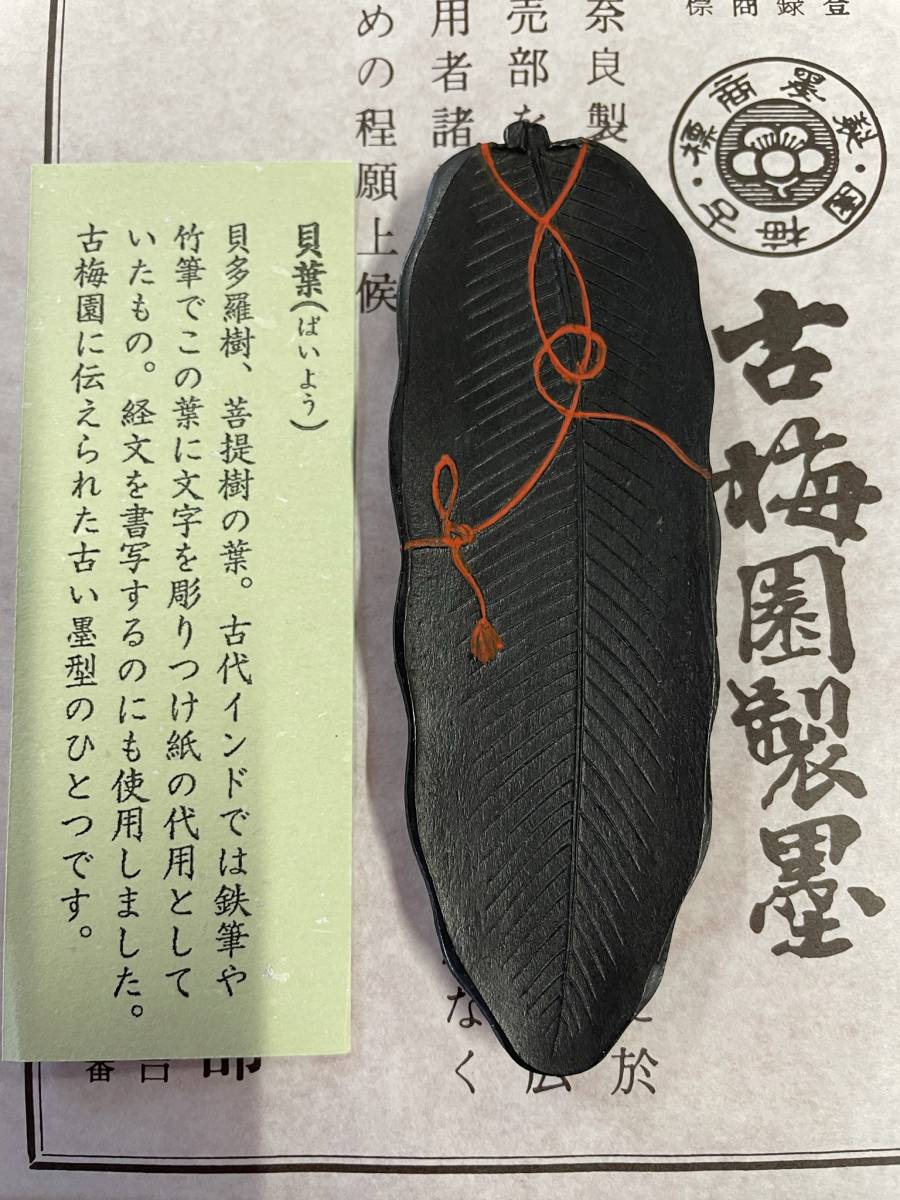 登録商標
古梅園・製墨商標・
古梅園製墨
奈良製
於
売部を
広
用者諸
なく
めの程願上候
貝葉(ばいよう)
貝多羅樹、菩提樹の葉。古代インドでは鉄筆や
竹筆でこの葉に文字を彫りつけ紙の代用として
いたもの。経文を書写するのにも使用しました。
古梅園に伝えられた古い墨型のひとつです。